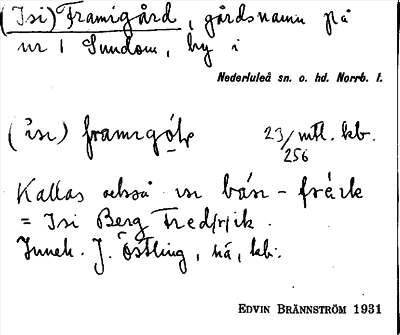 (Isi) Framigård, gårdsnamn på
nr 1 Sundom, by i
Nederluleå sn. o. hd. Norrb. l.
(ɩsɩ) framɩgó̠lɐ 23/256 mtl. kb.
Kallas också ɩsɩ bá̠sɩ - frá̠ɩk
= Isi Berg Fred(r)ik.
Inneh. J. Östling, nä, kb.
EDVIN BRÄNNSTRÖM 1931